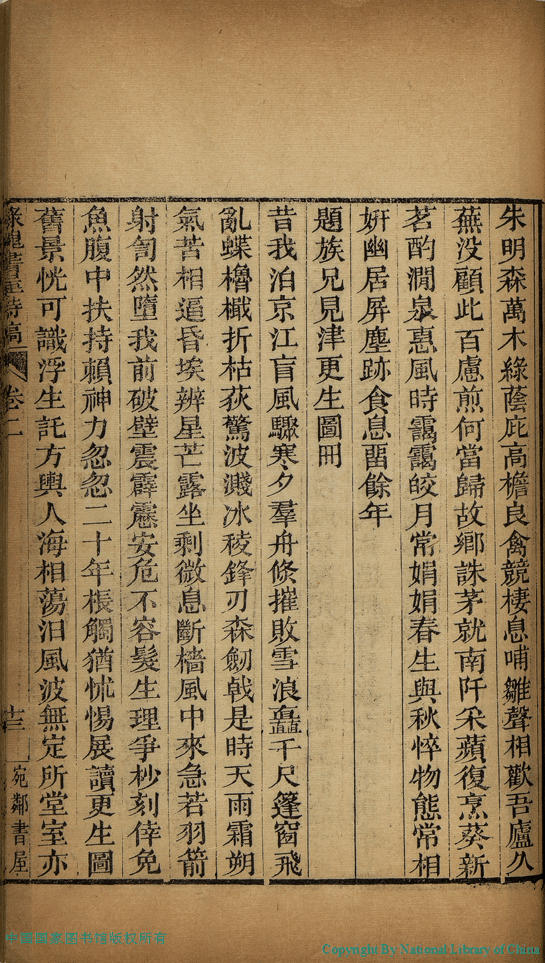 朱明森萬木綠蔭庇高檐良禽競棲息哺雛聲相歡吾廬久
蕪没顧此百慮煎何當歸故鄉誅茅就南阡采蘋復烹葵新
茗酌澗泉惠風時靄靄皎月常娟娟春生與秋悴物態常相
妍幽居屏塵跡食息畱餘年
題族兄見津更生圖冊
昔我泊京江盲風驟寒夕羣舟倐摧敗雪浪矗千尺篷窗飛
亂蝶櫓檝折枯荻驚波濺冰稜鋒刃森劒戟是時天雨霜朔
氣苦相逼昏埃辨星芒露坐剩微息斷檣風中來急若羽箭
射訇然墮我前破壁震霹靂安危不容髮生理爭杪刻倖免
魚腹中扶持賴神力忽忽二十年棖觸猶怵惕展讀更生圖
舊景恍可識浮生託方輿人海相蕩汨風波無定所堂室亦
詩高 卷二 十三 宛鄰書屋
中国国家图书馆版权所有
Copyright By National Library of China